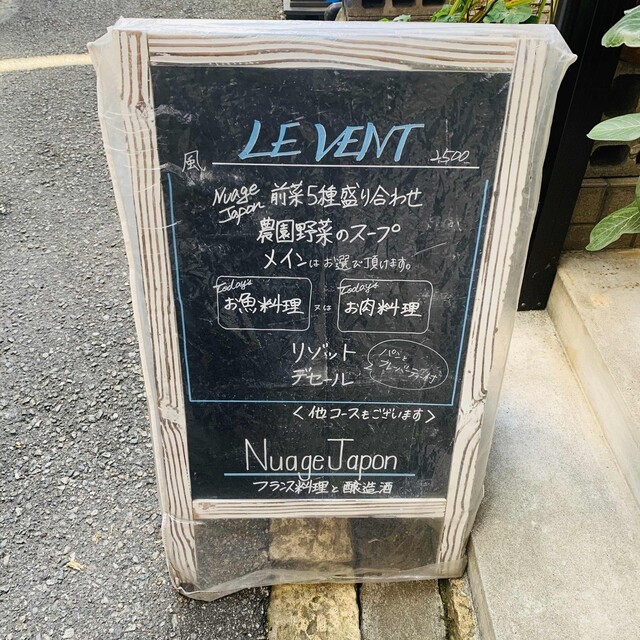 風 LE VENT
Nuage Japon 前菜5種盛り合わせ
農園野菜のスープ
メインはお選び頂けます。
Today's お魚料理 又は Today's お肉料理
リゾット
デセール
パンと
<他コースもございます>
Nuage Japon
フランス料理と醸造酒